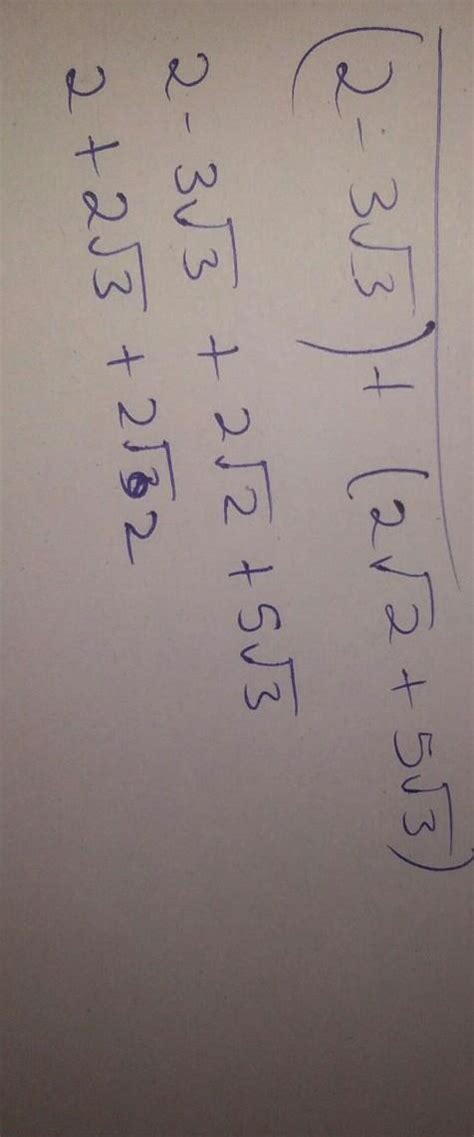 (2 - 3√3) + (2√2 + 5√3)
2 - 3√3 + 2√2 + 5√3
2 + 2√3 + 2√2